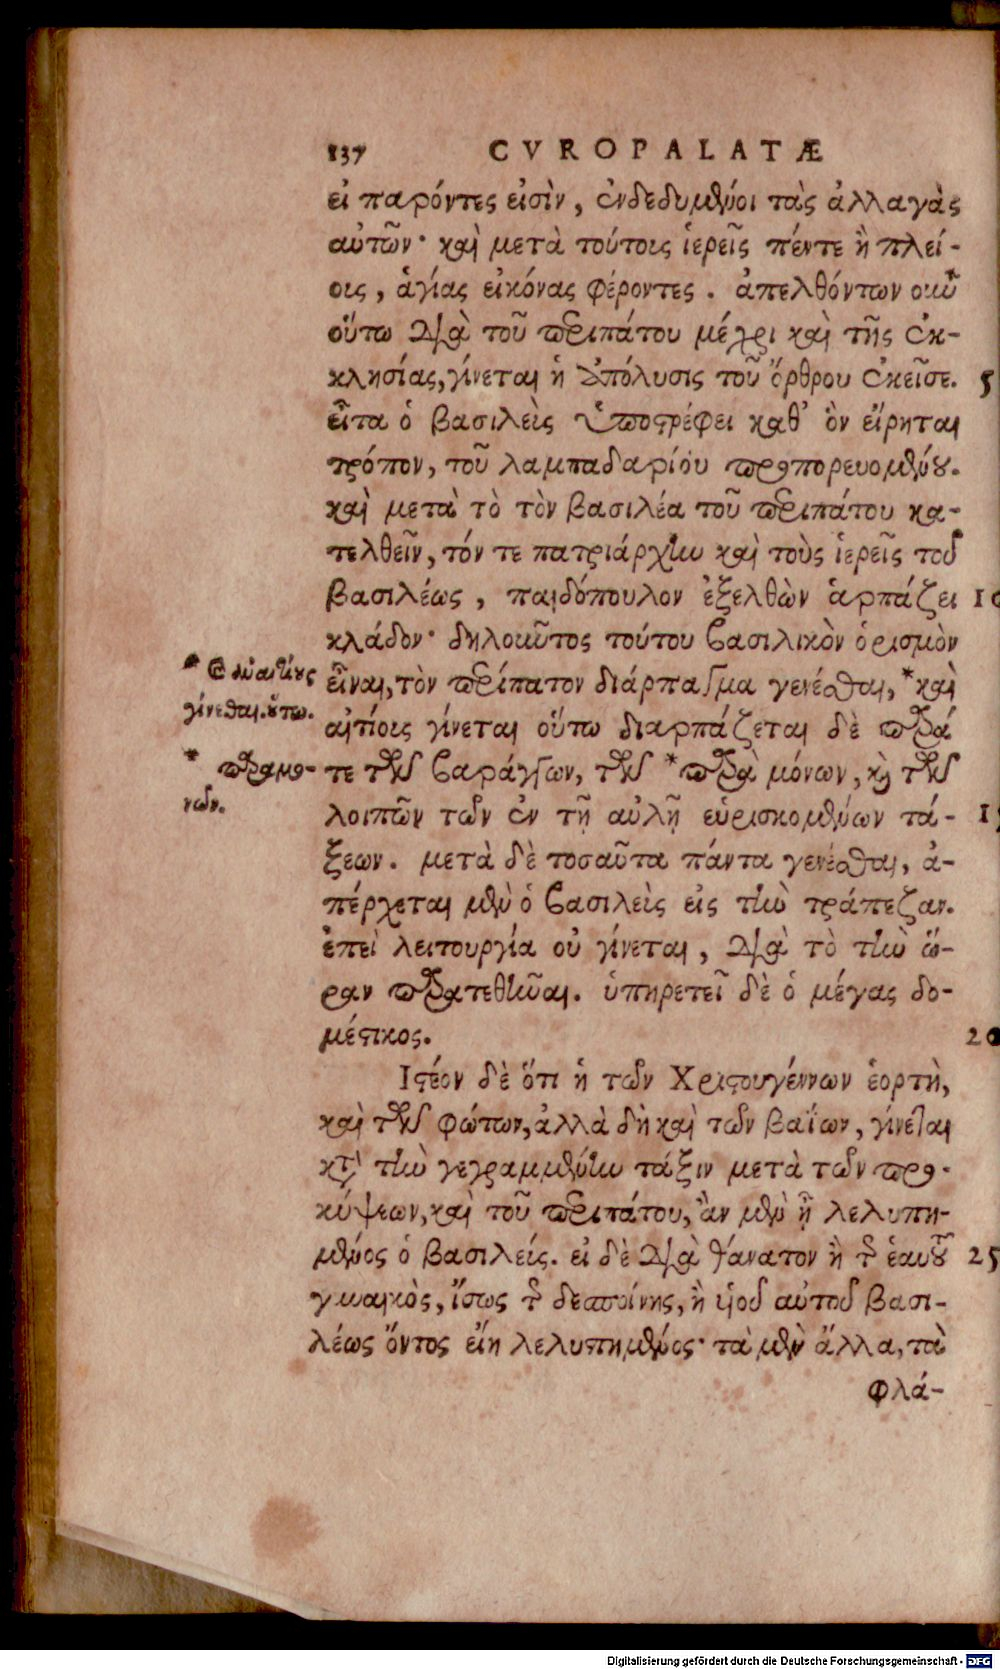 137 CVROPALATÆ
εἰ παρόντες εἰσὶν, ἐνδεδυμένοι τὰς ἀλλαγὰς
αὐτῶν· καὶ μετὰ τούτοις ἱερεῖς πέντε ἢ πλεί-
οις, ἁγίας εἰκόνας φέροντες. ἀπελθόντων οὖν
οὕτω διὰ τοῦ περιπάτου μέχρι καὶ τῆς ἐκ-
κλησίας, γίνεται ἡ ἀπόλυσις τοῦ ὄρθρου ἐκεῖσε. 5
εἶτα ὁ βασιλεὺς ὑποστρέφει καθ' ὃν εἴρηται
τρόπον, τοῦ λαμπαδαρίου προπορευομένου.
καὶ μετὰ τὸ τὸν βασιλέα τοῦ περιπάτου κα-
τελθεῖν, τόν τε πατριάρχην καὶ τοὺς ἱερεῖς τοῦ
βασιλέως, παιδόπουλον ἐξελθὼν ἁρπάζει 10
κλάδον· δηλοῦντος τούτου βασιλικὸν ὁρισμὸν
εἶναι, τὸν περίπατον διάρπασμα γενέσθαι, * καὶ
αἰτίοις γίνεται οὕτω διαρπάζεται δὲ παρά
τε τῶν βαράγγων, τῶν * παρὰ μόνων, καὶ τῶν
λοιπῶν τῶν ἐν τῇ αὐλῇ εὑρισκομένων τά- 15
ξεων. μετὰ δὲ τοσαῦτα πάντα γενέσθαι, ἀ-
πέρχεται μὲν ὁ βασιλεὺς εἰς τὴν τράπεζαν.
ἐπεὶ λειτουργία οὐ γίνεται, διὰ τὸ τὴν ὥ-
ραν παρατεθῆναι. ὑπηρετεῖ δὲ ὁ μέγας δο-
μέστικος. 20
Ἰστέον δὲ ὅτι ἡ τῶν Χριστουγέννων ἑορτὴ,
καὶ τῶν φώτων, ἀλλὰ δὴ καὶ τῶν βαΐων, γίνεται
κατὰ τὴν γεγραμμένην τάξιν μετὰ τῶν προ-
κύψεων, καὶ τοῦ περιπάτου, ἂν μὲν ᾖ λελυπη-
μένος ὁ βασιλεύς. εἰ δὲ διὰ θάνατον ἢ τῆς ἑαυτοῦ 25
γυναικὸς, ἴσως τῆς δεσποίνης, ἢ υἱοῦ αὐτοῦ βασι-
λέως ὄντος εἴη λελυπημένος· τὰ μὲν ἄλλα, τὰ
φλά-
γίνεσθαι. οὕτω.
* παραμο-
νῶν.
Digitalisierung gefördert durch die Deutsche Forschungsgemeinschaft - DFG